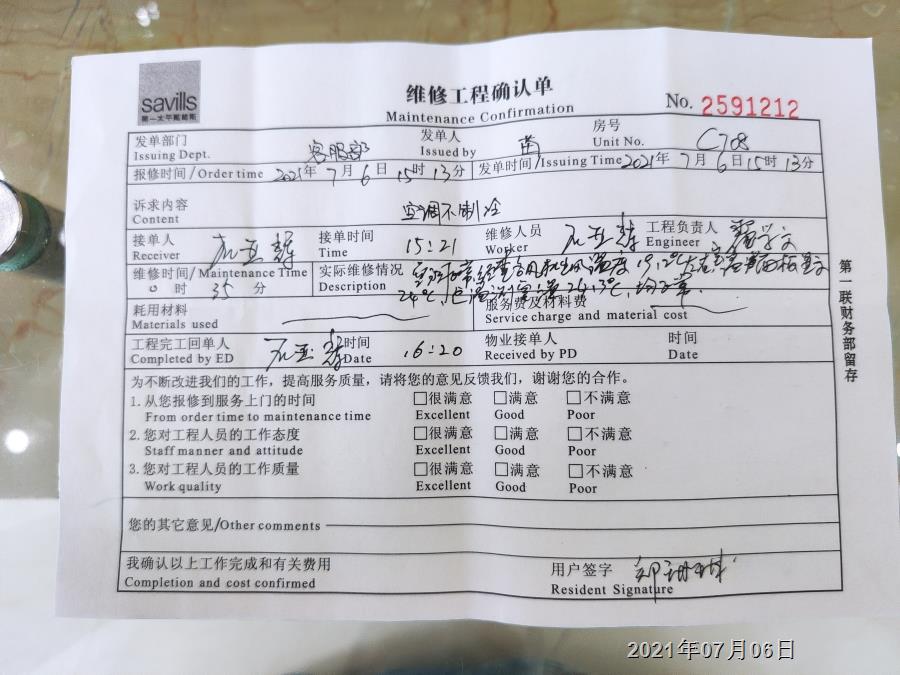 savills
第一太平戴维斯
维修工程确认单
Maintenance Confirmation
No. 2591212
发单部门 客服部 发单人 苗 房号 C708
Issuing Dept. Issued by Unit No.
报修时间/Order time 2021年7月6日15时13分 发单时间/Issuing Time 2021年7月6日15时13分
诉求内容 空调不制冷
Content
接单人 接单时间 15:21 维修人员 工程负责人
Receiver Time Worker Engineer
维修时间/Maintenance Time 实际维修情况
0时35分 Description 24℃
耗用材料 服务费及材料费
Materials used Service charge and material cost
工程完工回单人 时间 16:20 物业接单人 时间
Completed by ED Date Received by PD Date
为不断改进我们的工作，提高服务质量，请将您的意见反馈我们，谢谢您的合作。
1.从您报修到服务上门的时间 □很满意 □满意 □不满意
From order time to maintenance time Excellent Good Poor
2.您对工程人员的工作态度 □很满意 □满意 □不满意
Staff manner and attitude Excellent Good Poor
3.您对工程人员的工作质量 □很满意 □满意 □不满意
Work quality Excellent Good Poor
您的其它意见/Other comments
我确认以上工作完成和有关费用 用户签字
Completion and cost confirmed Resident Signature
第一联财务部留存
2021年07月06日